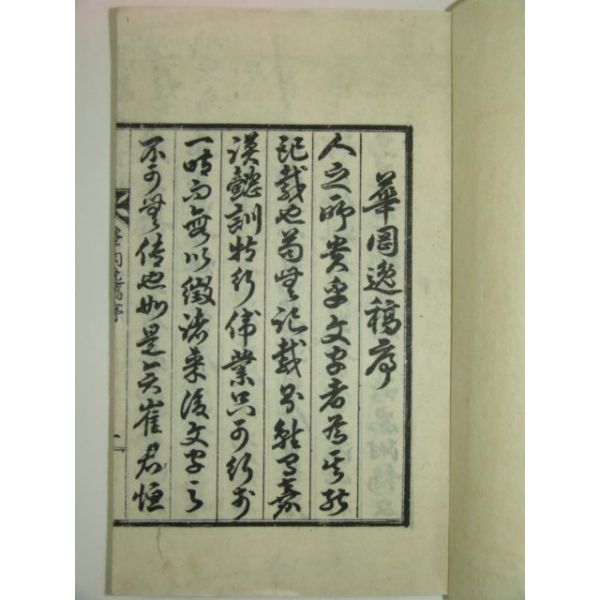 華岡逸稿序
人之所貴乎文字者為其能
記載也苟無記載雖有嘉
謨懿訓特行偉業只可行於
一時而無以徵諸來後文字之
不可無傳也如是矣崔君恒
華岡逸稿序
一